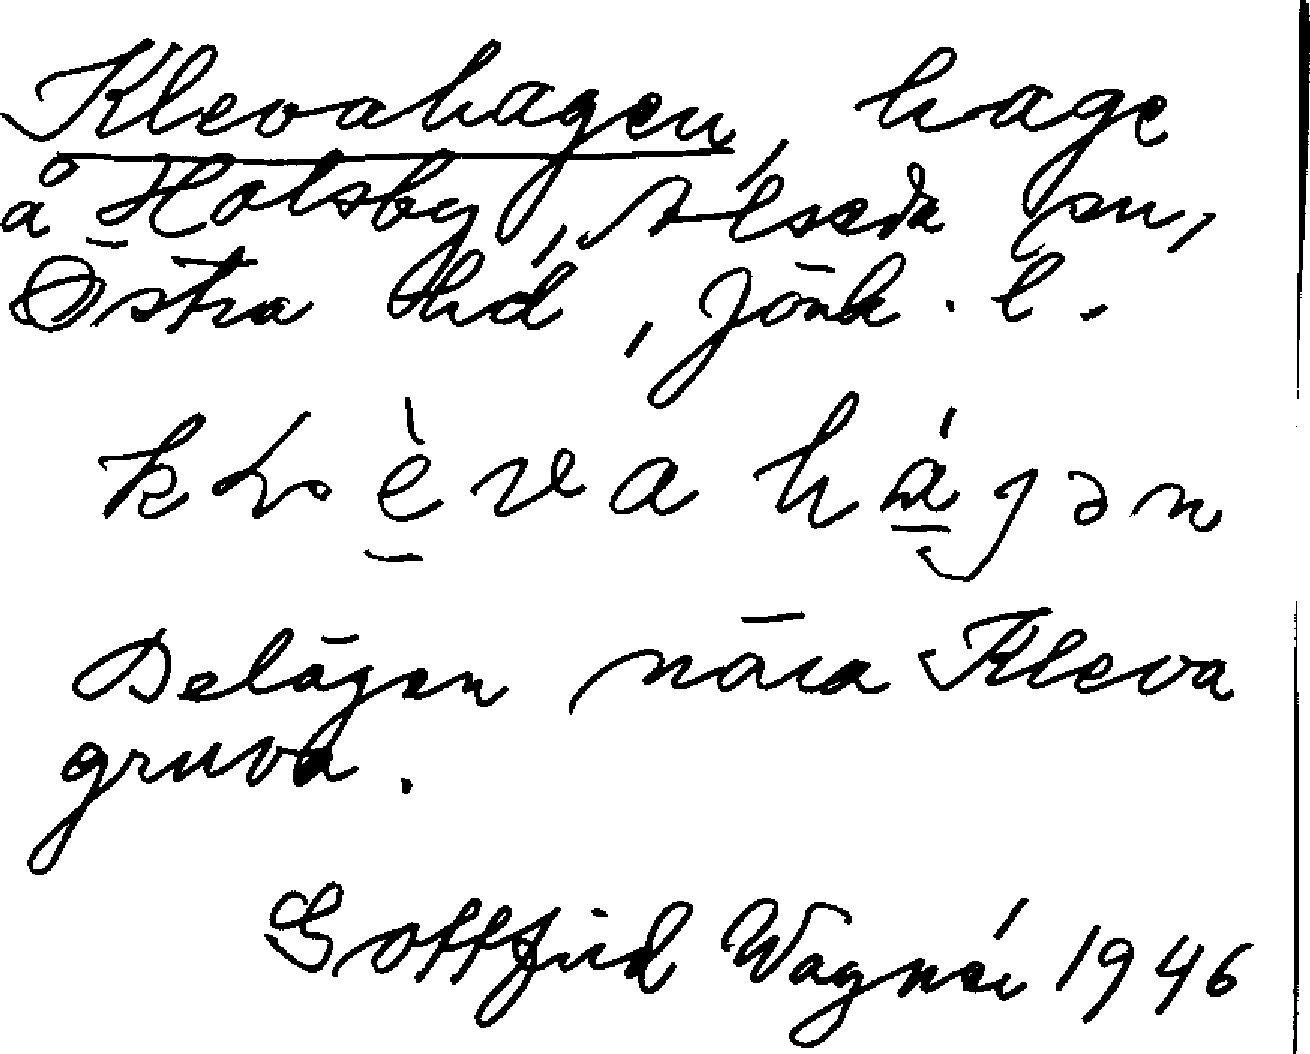 Klevahagen, hage
å Holsby, Alseda sn,
Östra hd, Jönk. l.
Belägen nära Kleva
gruva.
Gottfrid Wagnér 1946